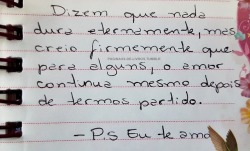 Dizem que nada
dura eternamente, mas
creio firmemente que
para alguns, o amor
continua mesmo depois
de termos partido.
- P.s Eu te amo